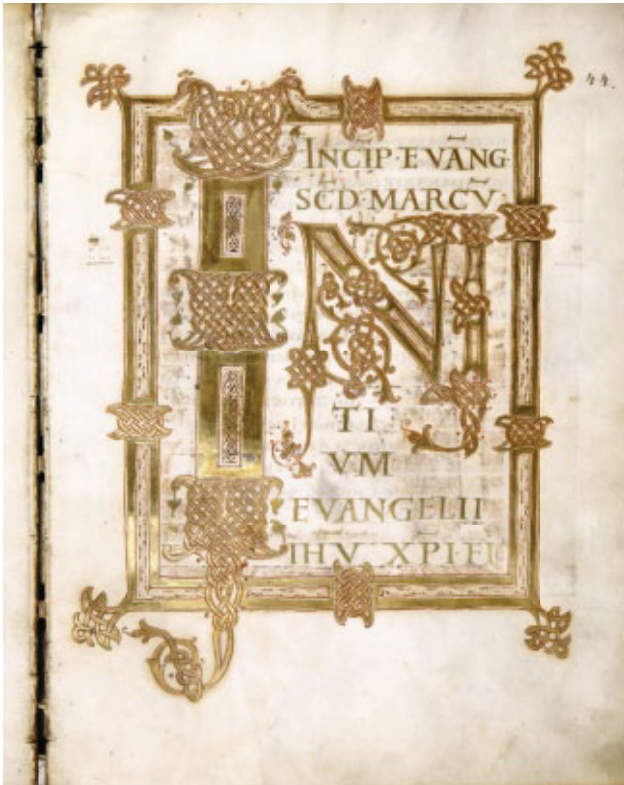 44.
INCIP·EVANG
SCD·MARCV
IN
TI
VM
EVANGELII
IHV XPI FI